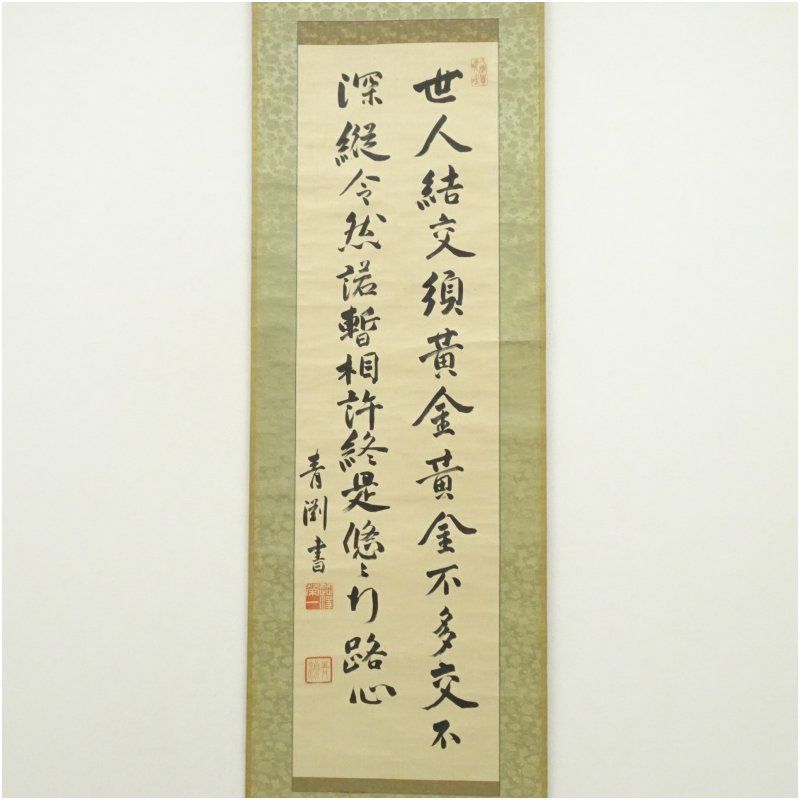 世人結交須黄金黄金不多交不
深縦令然諾暫相許終是悠〻行路心
青淵書